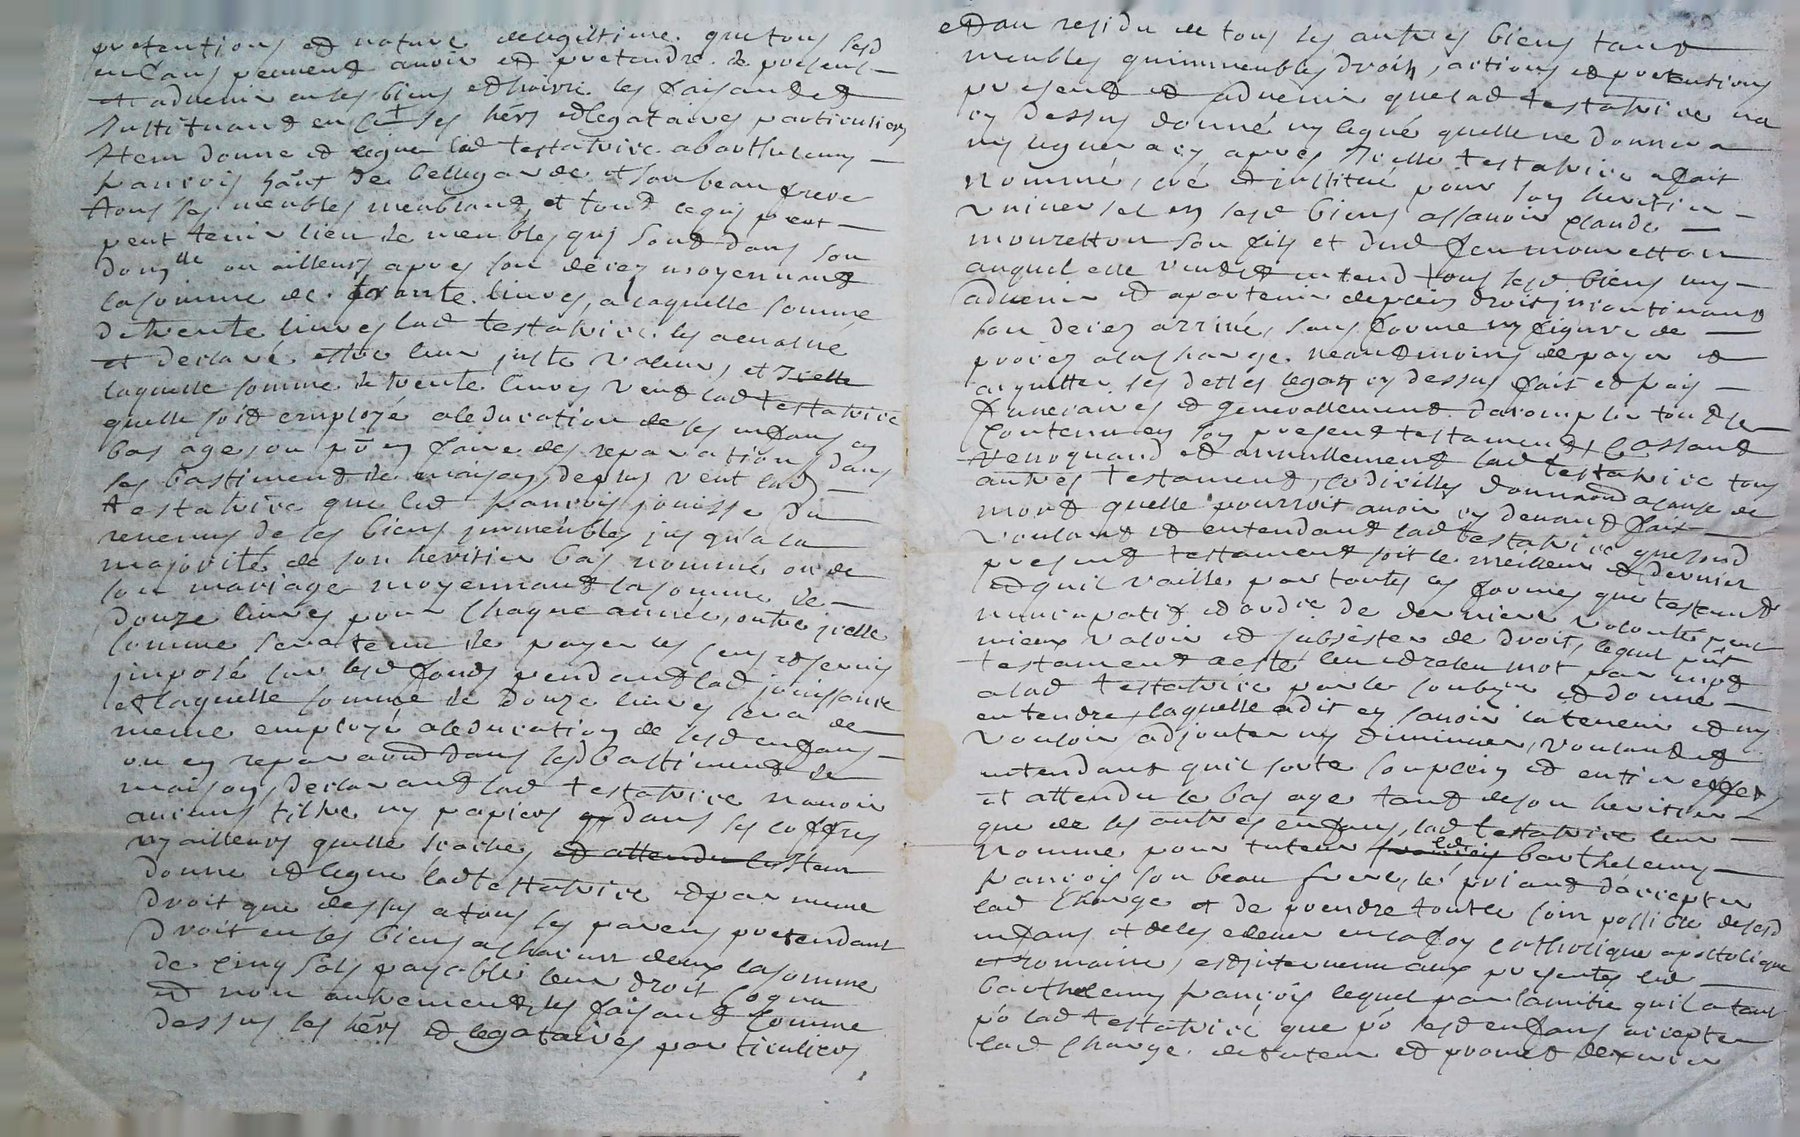 pretentions et nature de legitime que tous sesd
enfans peuvent avoir et pretendre de present
et advenir en ses biens et hoirie les faisant et
Instituant en ce ses hérs et legataires particuliers
Item donne et legue lad testatrice a barthelemy
françois hãnt de bellegarde et son beau frere
tous ses meubles meublans et tout ce qui peut
peut tenir lieu de meubles qui sont dans son
domlle ou ailleurs apres son deces moyennant
la somme de trante livres, a laquelle somme
de trente livres lad testatrice les a evalué
et declaré estre leur juste valeur, et Icelle
laquelle somme de trente livres veut lad testatrice
quelle soit employé a leducation de ses enfans en
bas age, ou pō en faire des reparations dans
ses bastiment de maison, de plus veut lad
testatrice que led françois jouisse du
revenus de ses biens immeubles jusqu'a la
majorité de son heritier bas nommé ou de
son mariage moyennant la somme de
douze livres pour chaque année, outre jcelle
somme sera tenu de payer les cens et servis
jmposé sur lesd fonds pendant lad jouissance
et laquelle somme de douze livres sera de
meme employé a leducation de lesd enfans
ou en reparaõn dans lesd bastiment de
maison, declarant lad testatrice navoir
aucuns tiltre ny papiers dans ses coffres
ny ailleurs quelle scache, et attendu les Item
donne et legue lad testatrice et par meme
droit que dessus a tous ses parens pretendant
droit en ses biens a chacun deux la somme
de cinq sols payable leur droit cognu
et non autrement, les faisant comme
dessus ses hérs et legataires particuliers
et au residu de tous ses autres biens tant
meubles quimmeubles droits, actions et pretentions
present et advenir que lad testatrice na
cy dessus donné ny legué quelle ne donnera
ny leguera cy apres Icelle testatrice a fait
nommé, créé et institué pour son heritier
universel en sesd biens assavoir Claude
mouretton son fils et dud feu mouretton
auquel elle veut et entend tous sesd biens
advenir et apartenir de plein droit incontinant
son deces arrivé, sans forme ny figure de
proces a la charge neantmoins de payer et
acquitter ses dettes legats cy dessus fait et frais
funeraires et generallement daccomplir tout le
contenu en son present testament, Cassant
revoquant et annullement lad testatrice tous
autres testament, codicilles donnaõn a cause de
mort quelle pourroit avoir cy devant fait
voulant et entendant lad testatrice que sond
present testament soit le meilleur et dernier
et quil vaille par toutes les formes que testament
nuncupatif et ordre de derniere volonté peut
mieux valoir et subsister de droit, lequel pñt
testament a esté leu et releu mot par mot
a lad testatrice par le soubzne et donné
entendre, laquelle a dit en savoir la teneur et ny
vouloir adjouter ny diminuer, voulant et
entendant quil sorte son plein et entier effet
et attendu le bas age tant de son heritier
que de ses autres enfans, lad testatrice leur
nomme pour tuteur françois led barthelemy
françois son beau frere, le priant daccepter
lad charge et de prendre toutte soin possible de sesd
enfans et de les elever en la foy catholique apostolique
et romaine, est intervenu aux presentes led
barthelemy françois lequel par lamitié quil a tant
pō lad testatrice que pō sesd enfans accepter
lad charge de tuteur et promet dexercer